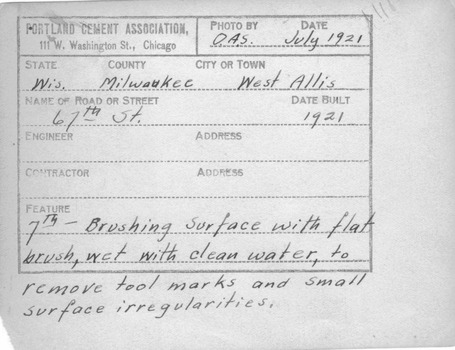 PORTLAND CEMENT ASSOCIATION, PHOTO BY DATE
111 W. Washington St., Chicago O.A.S. July 1921
STATE COUNTY CITY OR TOWN
Wis. Milwaukee West Allis
NAME OF ROAD OR STREET DATE BUILT
67th St. 1921
ENGINEER ADDRESS
CONTRACTOR ADDRESS
FEATURE
7th - Brushing surface with flat
brush, wet with clean water, to
remove tool marks and small
surface irregularities.